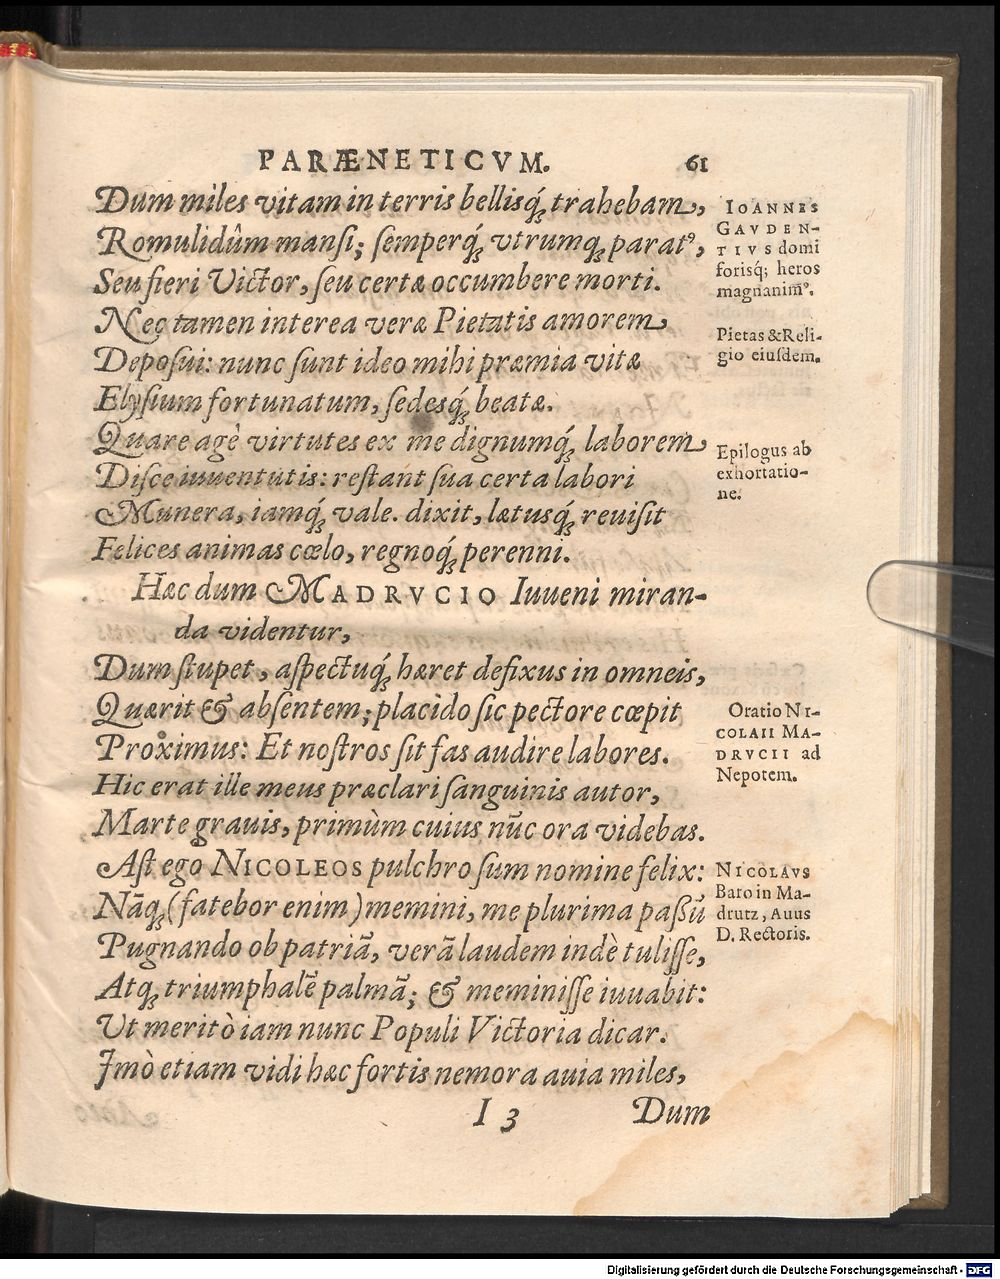 PARÆNETICVM. 61
Dum miles vitam in terris bellisq́; trahebam,
Romulidûm mansi; semperq́; vtrumq; paratꝰ,
Seu fieri Victor, seu certæ occumbere morti.
Nec tamen interea veræ Pietatis amorem
Deposui: nunc sunt ideo mihi præmia vitæ
Elysium fortunatum, sedesq́; beatæ.
Quare agè virtutes ex me dignumq́; laborem
Disce iuuentutis: restant sua certa labori
Munera, iamq́; vale. dixit, lætusq́; reuisit
Felices animas cœlo, regnoq́; perenni.
Hæc dum MADRVCIO Iuueni miran-
da videntur,
Dum stupet, aspectuq́; hæret defixus in omneis,
Quærit & absentem; placido sic pectore cœpit
Proximus: Et nostros sit fas audire labores.
Hic erat ille meus præclari sanguinis autor,
Marte grauis, primùm cuius nūc ora videbas.
Ast ego NICOLEOS pulchro sum nomine felix:
Nāq; (fatebor enim) memini, me plurima passū
Pugnando ob patriā, verā laudem indè tulisse,
Atq; triumphalē palmā; & meminisse iuuabit:
Ut meritò iam nunc Populi Victoria dicar.
Imò etiam vidi hæc fortis nemora auia miles,
I 3 Dum
IOANNES
GAVDEN-
TIVS domi
forisq́; heros
magnanimꝰ.
Pietas & Reli-
gio eiusdem.
Epilogus ab
exhortatio-
ne.
Oratio NI-
COLAII MA-
DRVCII ad
Nepotem.
NICOLAVS
Baro in Ma-
drutz, Auus
D. Rectoris.
Digitalisierung gefördert durch die Deutsche Forschungsgemeinschaft - DFG